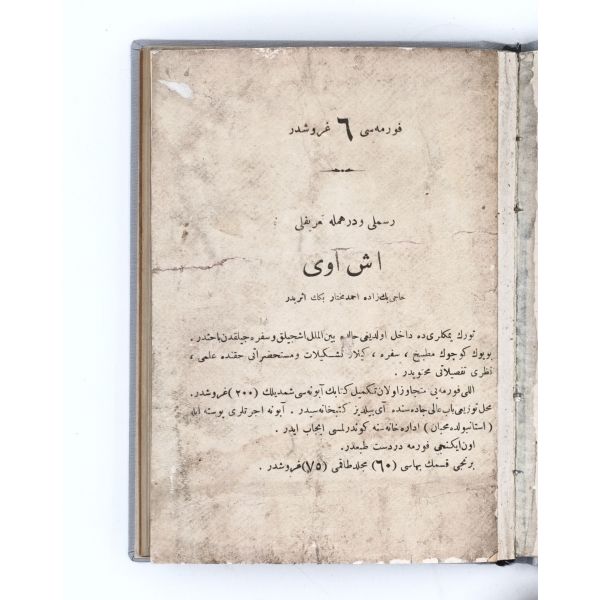 فورمه‌سی ٦ غروشدر
رسملی و درهمله تعریفلی
اش اوی
حاجی بك زاده احمد مختار بكك اثریدر
تورك یمكلری ده داخل اولدیغی حالده بین الملل اشجیلق و سفره‌جیلقدن باحثدر .
بویوك كوچوك مطبخ ، سفره ، كیلار تشكیلات و مستحضراتی حقنده علمی ،
نظری تفصیلاتی محتویدر .
اللی فورمه‌یی متجاوز اولان تكمیل كتابك آبونه‌سی شمدیلك (٢٠٠) غروشدر .
محل توزیعی باب عالی جاده‌سنده آی ییلدیز كتبخانه‌سیدر . آبونه اجرتلری پوسته ایله
( استانبولده محبان ) اداره‌خانه‌سنه كوندرلمسی ایجاب ایدر .
اون ایكنجی فورمه دردست طبعدر .
برنجی قسمك بهاسی (٦٠) مجلد طاقمی (٧٥) غروشدر .